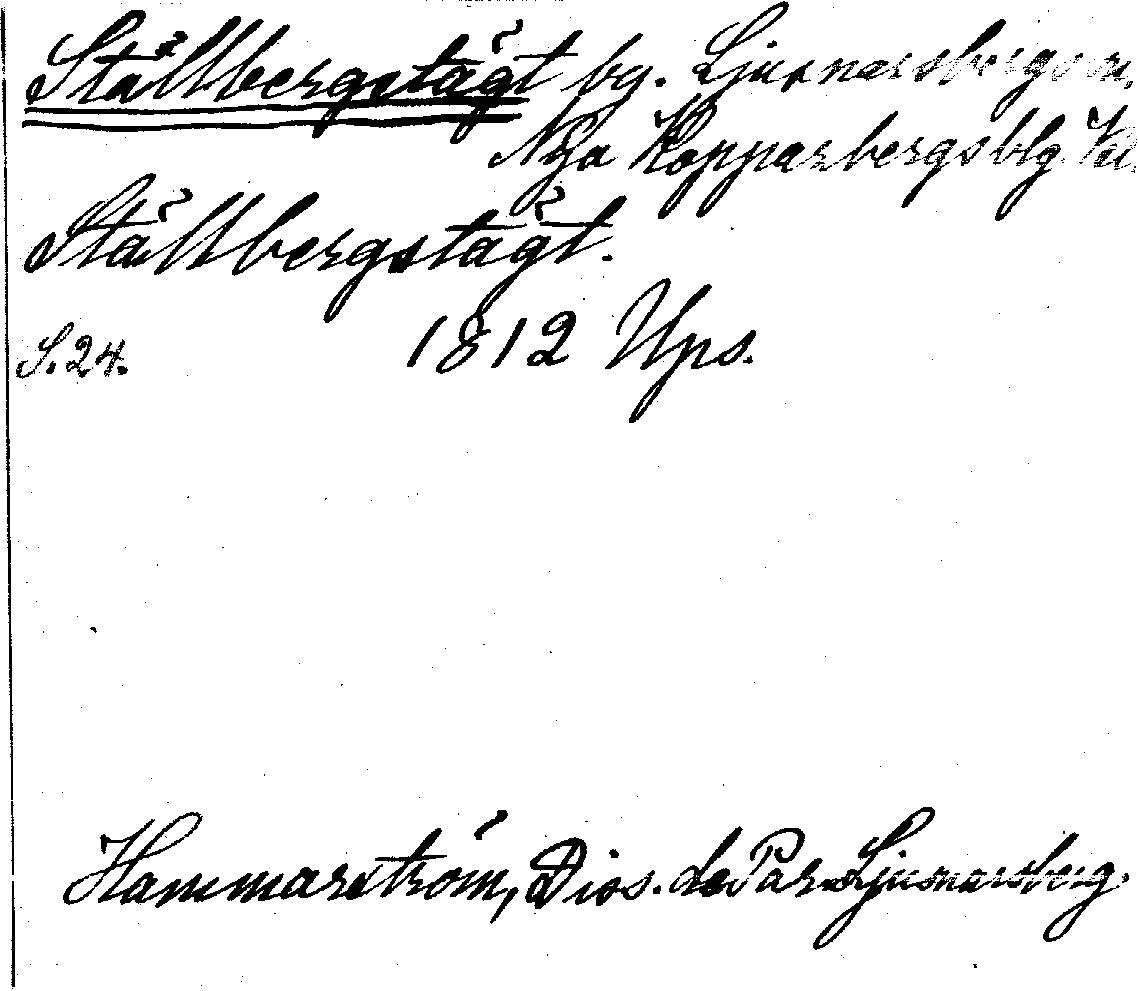 Ställbergstägt by. Ljusnarsbergs sn.
Nya Kopparbergs blg
Ställbergstägt.
S. 24. 1812 Ups.
Hammarström, Diss. de Par. Ljusnarsberg.